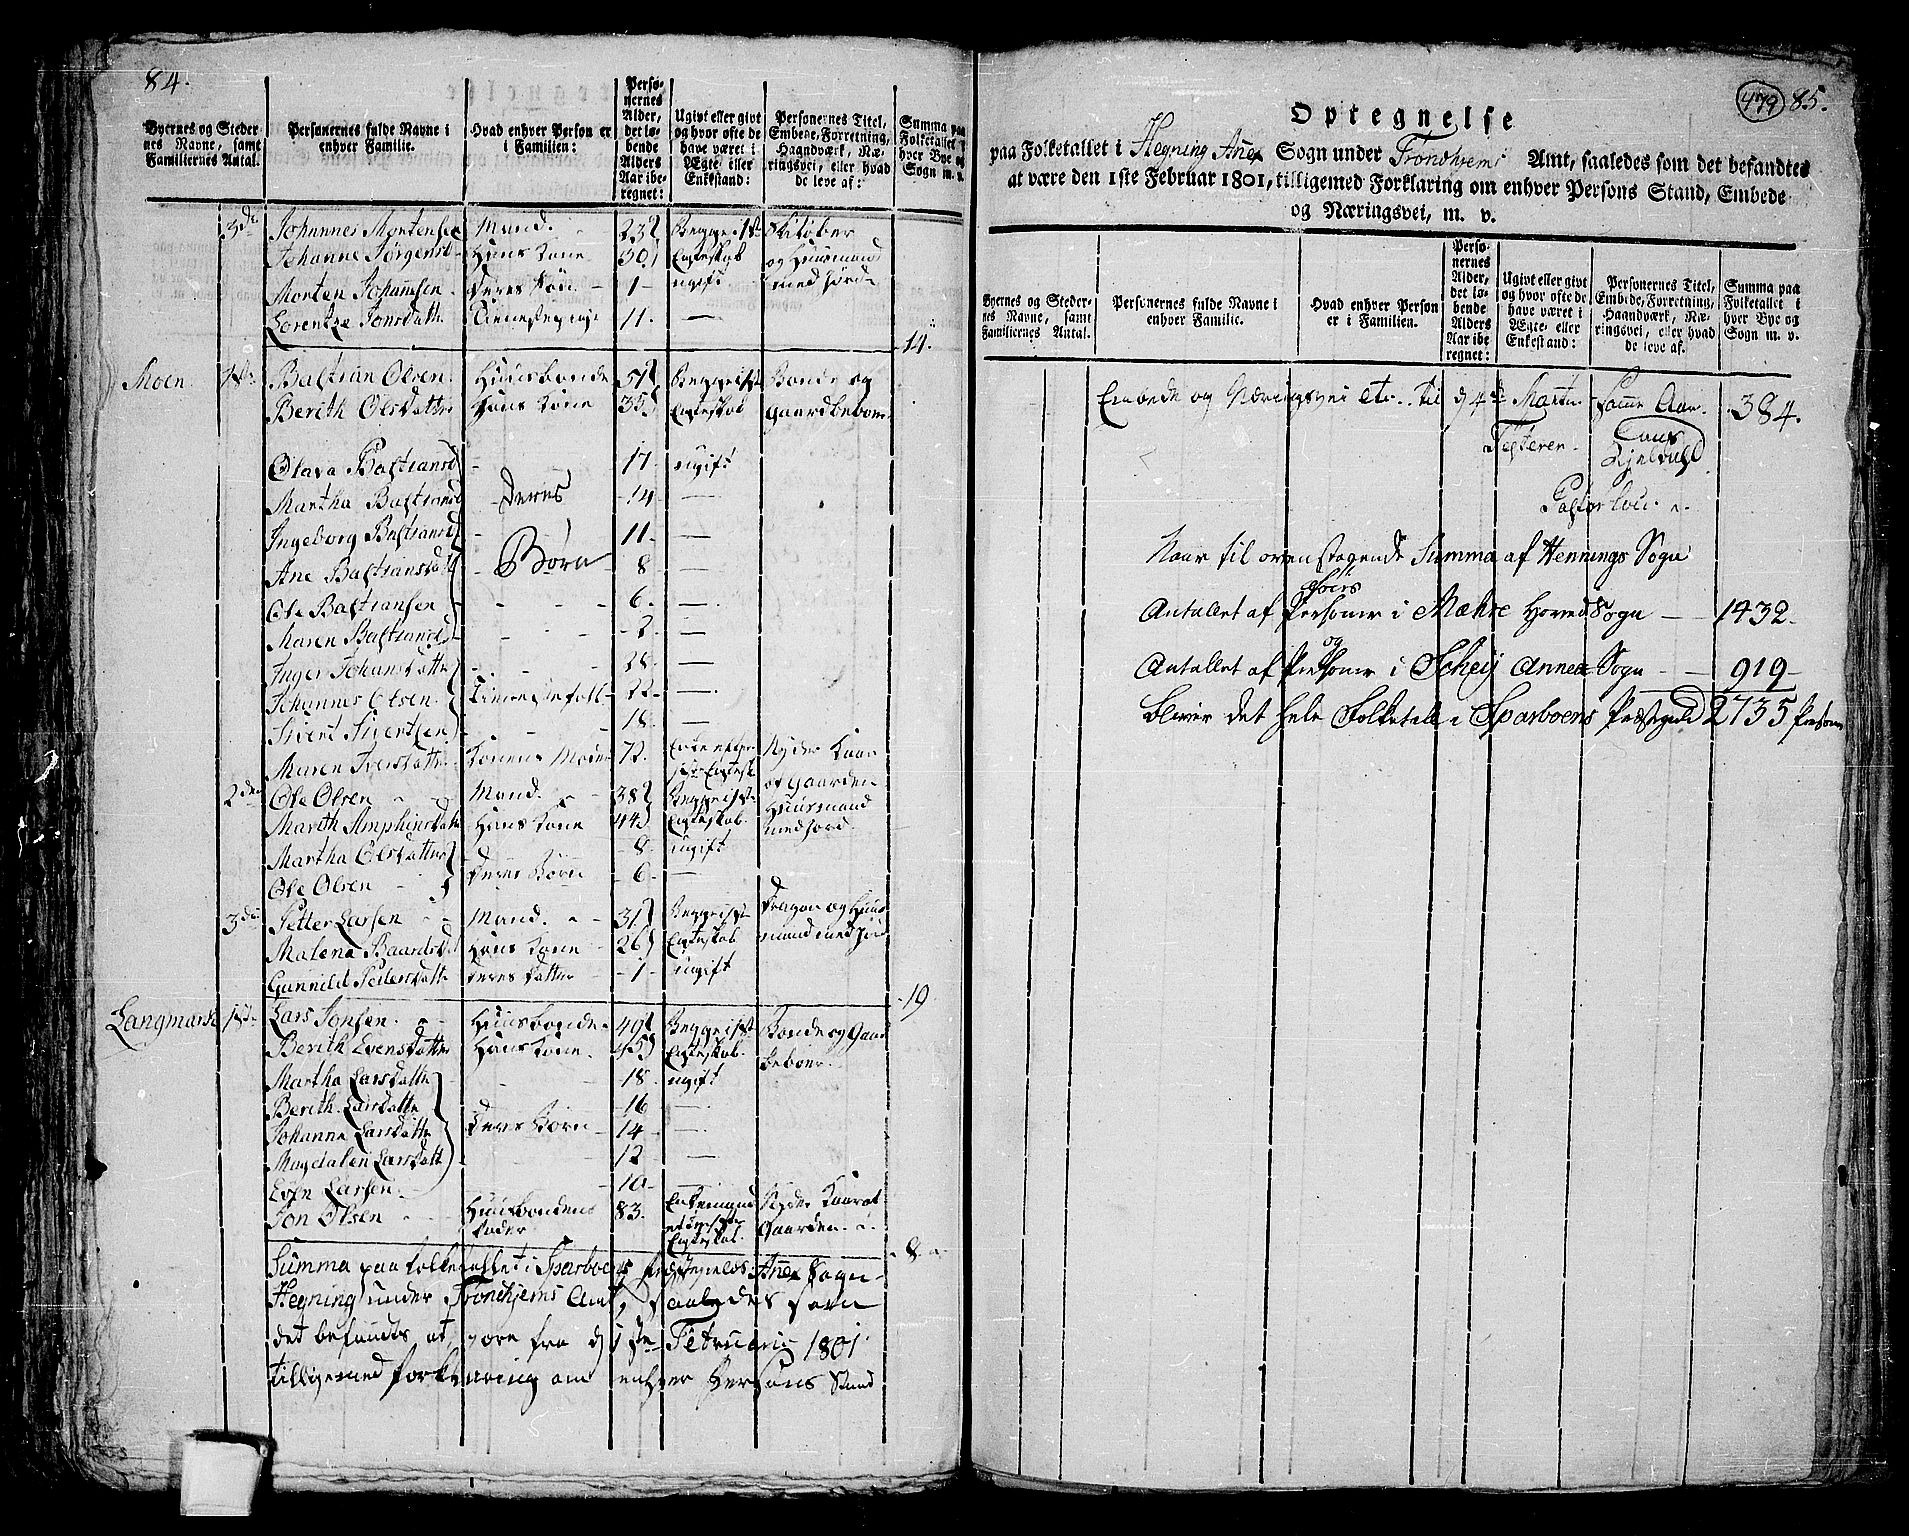 84.
Byernes og Steder nes Navne, samt Familiernes Antal.
Personernes fulde Navne i enhver Familie.
Hvad enhver Person er i Familien:
Perso- nernes Alder, det lø- bende Alders Aar ibe- regnet:
Ugivt eller givt og hvor ofte de have været i Ægte- eller Enkestand:
Personernes Titel, Embede, Forretning, Haandværk, Næ- ringsvei, eller hvad de leve af:
Summa paa Folketallet i hver Bye og Sogn m. v.
3de Johannes Mortensen Mand. 23 Begge i 1ste
Johanne Jørgensd Hans Kone 30 Egteskab og Huusmand
Morten Johansen Deres Søn 1 ugift med Jord
Lorentze Jonsdatt Tienestepige 11. —
14.
Moen 1ste Bastian Olsen Huusbonde 51 Begge i 1ste Bonde og
Berith Olsdatter Hans Kone 35 Egteskab Gaardbeboer
Olava Bastiansd 17 ugift
Martha Bastiansd Deres 14 —
Ingeborg Bastiansd 11. —
Ane Bastiansdatt Børn 8 —
Ole Bastiansen 6. —
Maren Bastiansd 2 —
Inger Johansdatter 28. —
Johannes Olsen Tienestefolk 22 —
Sivert Sivertsen 18. —
Maren Iversdatter Konens Moder 72. Enke efter Nyder Kaar
1ste Egtesk. af Gaarden
2den Ole Olsen Mand. 38 Begge i 1ste Huusmand
Marith Amphinsdatt Hans Kone 44 Egteskab. med Jord.
Martha Olsdatter 8 ugift
Ole Olsen Deres Børn 6. —
3de Petter Larsen Mand. 31 Begge i 1ste Dragon og Huus
Malena Baardsd Hans Kone 26 Egteskab mand med Jord
Gunnild Pedersdatt Deres Datter 1 ugift
19
Langmark 1ste Lars Jonsen. Huusbonde 49 Begge i 1ste Bonde og Gaard
Berith Evensdatter Hans Kone. 45 Egteskab. beboer.
Martha Larsdatte 18. ugift
Berith Larsdatte 16 —
Johanna Larsdatte Deres Børn 14 —
Magdalen Larsdatt 12 —
Even Larsen. 10. —
Jon Olsen Huusbondens 83. Enkemand Nyder Kaar af
Fader efter 1ste Gaarden.
Egteskab.
8
Summa paa folketallet i Sparboens Præstegields Anex Sogn
Hegning under Trondhjems Amt, saaledes som
det befandtes at være fra d 1ste Februarii 1801
tilligemed forklaring om enhver Persons Stand
479 85.
Optegnelse
paa Folketallet i Hegning Anex Sogn under Trondhiems Amt, saaledes som det befandtes
at være den 1ste Februar 1801, tilligemed Forklaring om enhver Persons Stand, Embede
og Næringsvei, m. v.
Byernes og Steder- nes Navne, samt Familiernes Antal.
Personernes fulde Navne i enhver Familie.
Hvad enhver Person er i Familien.
Perso- nernes Alder, det lø- bende Alders Aar ibe- regnet:
Ugivt eller givt og hvor ofte de have været i Ægte- eller Enkestand:
Personernes Titel, Embede, Forretning, Haandværk, Næ- ringsvei, eller hvad de leve af.
Summa paa Folketallet i hver Bye og Sogn m. v.
Embede og Næringsvei etc. til d 4de Martii samme Aar. 384.
Testerer
Pastor Loci
Naar til ovenstaaende Summa af Hennings Sogn
føies
Antallet af Personer i Mæhre Hoved Sogn — 1432.
og
Antallet af Personer i Schej Annex Sogn — 919
bliver det hele Folketall i Sparboens Præstegield 2735 Personer